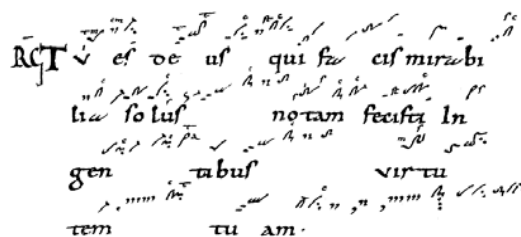 RG Tu es deus qui facis mirabi
lia solus notam fecisti In
gentibus virtu
tem tuam.